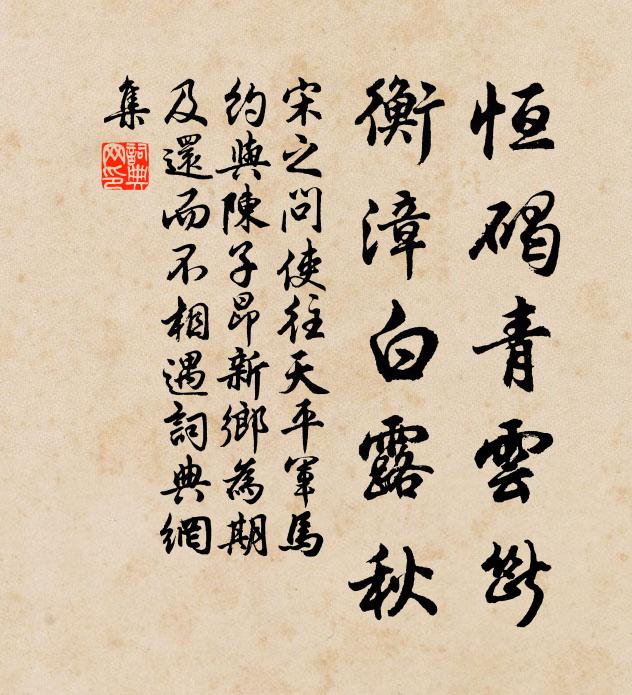 恒碣青雲斷
衡漳白露秋
宋之問使往天平軍馬
約與陳子昂新鄉為期
及還而不相遇詞典網
集
詞典
网印